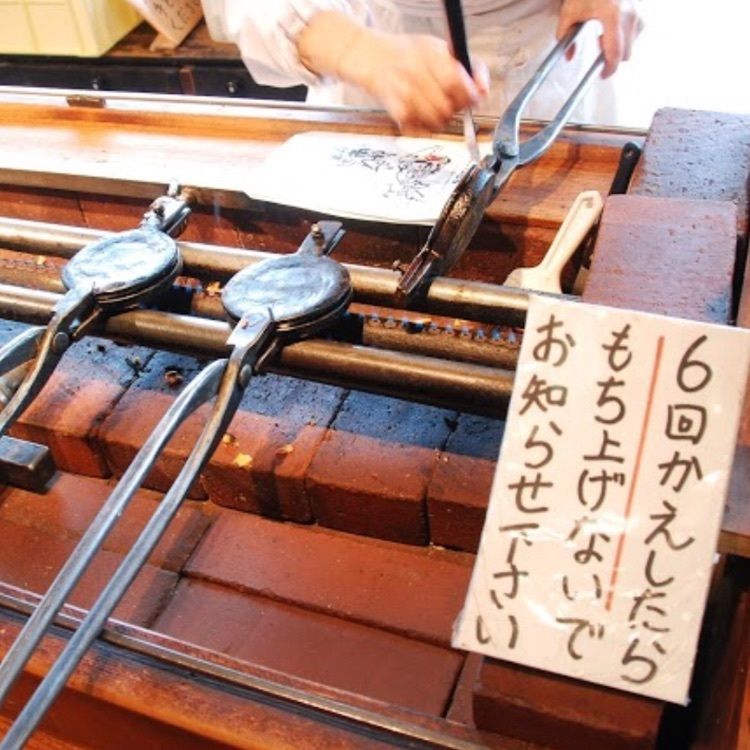 6回かえしたら
もち上げないで
お知らせ下さい